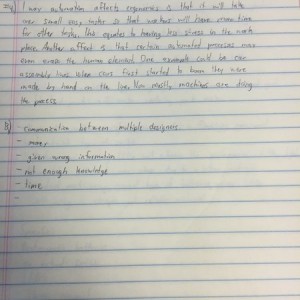 1 way automation affects ergonomics is that it will take
over small easy tasks so that workers will have more time
for other tasks, this equates to having less stress in the work
place. Another affect is that certain automated processes may
even avoid the human element. One example could be car
assembly lines when cars first started to boom they were
made by hand on the line, Now mostly machines are doing
the process
b) communication between multiple designers
- money
- given wrong information
- not enough knowledge
- time
-